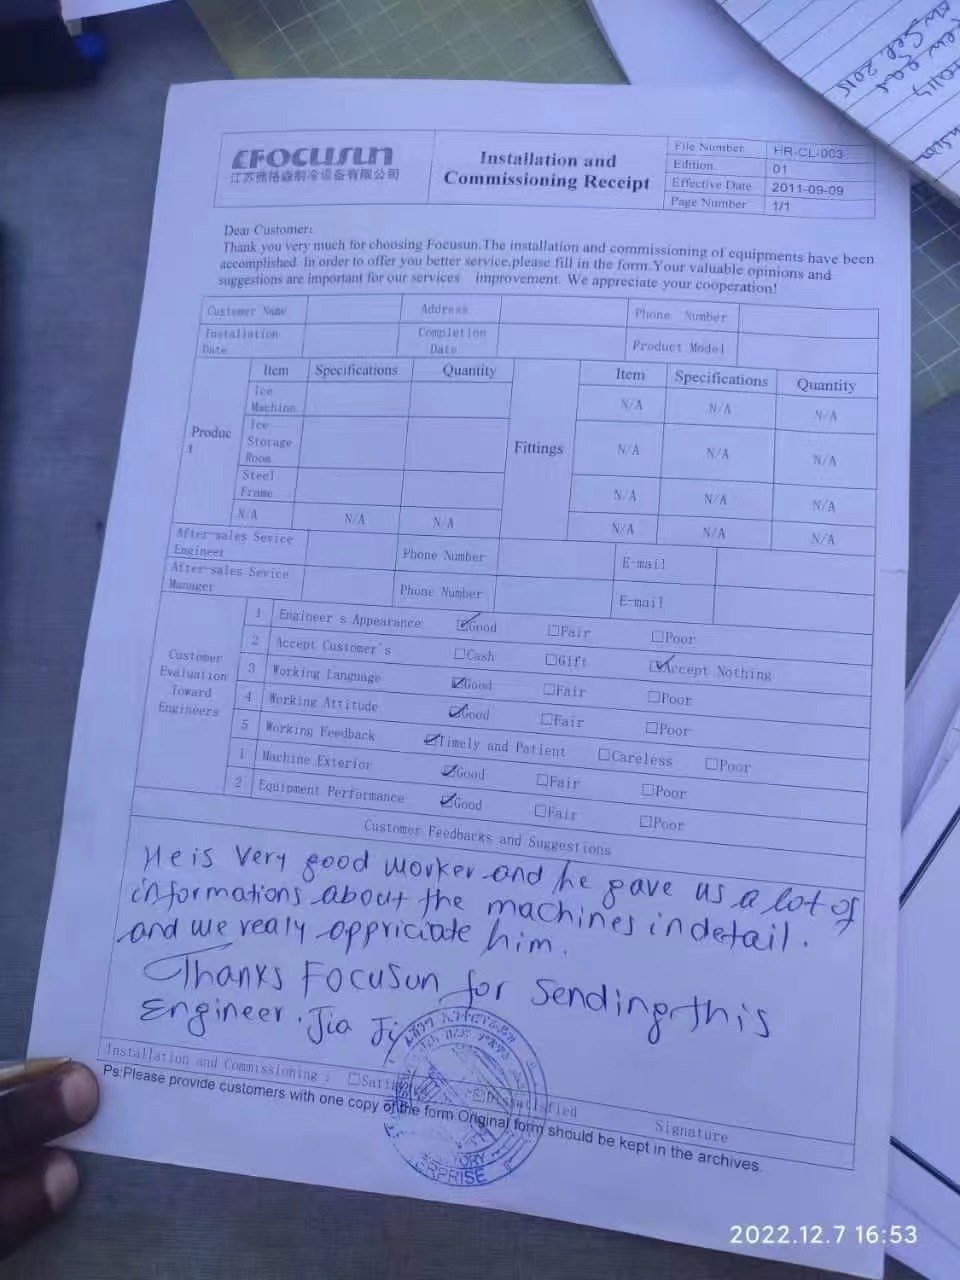 FOCUSUN
江苏福格森制冷设备有限公司
Installation and
Commissioning Receipt
File Number HR-CL-003
Edition 01
Effective Date 2011-09-09
Page Number 1/1
Dear Customer:
Thank you very much for choosing Focusun.The installation and commissioning of equipments have been
accomplished. In order to offer you better service,please fill in the form.Your valuable opinions and
suggestions are important for our services improvement. We appreciate your cooperation!
Customer Name Address Phone Number
Installation Date Completion Date Product Model
Item Specifications Quantity Item Specifications Quantity
Product
Ice Machine N/A N/A N/A
Ice Storage Room Fittings N/A N/A N/A
Steel Frame N/A N/A N/A
N/A N/A N/A N/A N/A N/A
After-sales Sevice Engineer Phone Number E-mail
After-sales Sevice Manager Phone Number E-mail
Customer Evaluation Toward Engineers
1 Engineer's Appearance ☑Good ☐Fair ☐Poor
2 Accept Customer's ☐Cash ☐Gift ☑Accept Nothing
3 Working Language ☑Good ☐Fair ☐Poor
4 Working Attitude ☑Good ☐Fair ☐Poor
5 Working Feedback ☑Timely and Patient ☐Careless ☐Poor
1 Machine Exterior ☑Good ☐Fair ☐Poor
2 Equipment Performance ☑Good ☐Fair ☐Poor
Customer Feedbacks and Suggestions
He is very good worker and he gave us a lot of
informations about the machines in detail.
and we realy appriciate him.
Thanks Focusun for sending this
Engineer. Jia Ji
Installation and Commissioning: ☐ ☐Dissatisfied Signature
Ps:Please provide customers with one copy of the form Original form should be kept in the archives.
2022.12.7 16:53